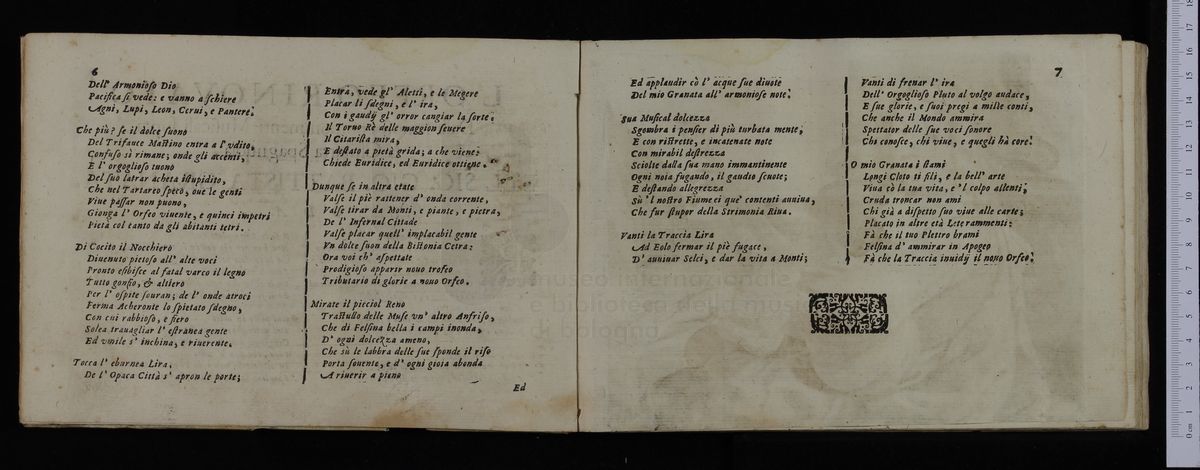 6
Dell' Armonioſo Dio
Pacifica ſi vede: e vanno a ſchiere
Agni, Lupi, Leon, Cerui, e Pantere.
Che più? ſe il dolce ſuono
Del Trifauce Maſtino entra a l' vdito,
Confuſo ſi rimane; onde gli accenti,
E l' orgoglioſo tuono
Del ſuo latrar acheta iſtupidito,
Che nel Tartareo ſpeco, oue le genti
Viue paſſar non puono,
Gionga l' Orfeo viuente, e quinci impetri
Pietà col canto da gli abitanti tetri.
Di Cocito il Nocchiero
Diuenuto pietoſo all' alte voci
Pronto eſibiſce al fatal varco il legno
Tutto gonfio, & altiero
Per l' oſpite ſouran; de l' onde atroci
Ferma Acheronte lo ſpietato ſdegno,
Con cui rabbioſo, e fiero
Solea trauagliar l' eſtranea gente
Ed vmile s' inchina, e riuerente.
Tocca l' eburnea Lira,
De l' Opaca Città s' apron le porte;
Entra, vede gl' Aletti, e le Megere
Placar li ſdegni, e l' ira,
Con i gaudij gl' orror cangiar la ſorte;
Il Toruo Rè delle maggion ſeuere
Il Citariſta mira,
E deſtato a pietà grida; a che viene?
Chiede Euridice, ed Euridice ottiene.
Dunque ſe in altra etate
Valſe il piè rattener d' onda corrente,
Valſe tirar da Monti, e piante, e pietra,
De l' Infernal Cittade
Valſe placar quell' implacabil gente
Vn dolce ſuon della Biſtonia Cetra:
Ora voi ch' aſpettate
Prodigioſo apparir nouo trofeo
Tributario di glorie a nouo Orfeo.
Mirate il picciol Reno
Traſtullo delle Muſe vn' altro Anfriſo,
Che di Felſina bella i campi inonda,
D' ogni dolcezza ameno,
Che sù le labbra delle ſue ſponde il riſo
Porta ſouente, e d' ogni gioia abonda
A riuerir a pieno
Ed
7
Ed applaudir cò l' acque ſue diuote
Del mio Granata all' armonioſe note.
Sua Muſical dolcezza
Sgombra i penſier di più turbata mente,
E con riſtrette, e incatenate note
Con mirabil deſtrezza
Sciolte dalla ſua mano immantinente
Ogni noia fugando, il gaudio ſcuote;
E deſtando allegrezza
Sù 'l noſtro Fiume ei que' contenti auuiua,
Che fur ſtupor della Strimonia Riua.
Vanti la Traccia Lira
Ad Eolo fermar il piè fugace,
D' auuiuar Selci, e dar la vita a Monti;
Vanti di frenar l' ira
Dell' Orgoglioſo Pluto al volgo audace,
E ſue glorie, e ſuoi pregi a mille conti,
Che anche il Mondo ammira
Spettator delle ſue voci ſonore
Chi conoſce, chi viue, e quegli hà core.
O mio Granata i ſtami
Lungi Cloto ti fili, e la bell' arte
Viua cò la tua vita, e 'l colpo allenti;
Cruda troncar non ami
Chi già a diſpetto ſuo viue alle carte;
Placato in altre età
Fà che il tuo Plettro brami
Felſina d' ammirar in Apogeo
Fà che la Traccia inuidij il nouo Orfeo.